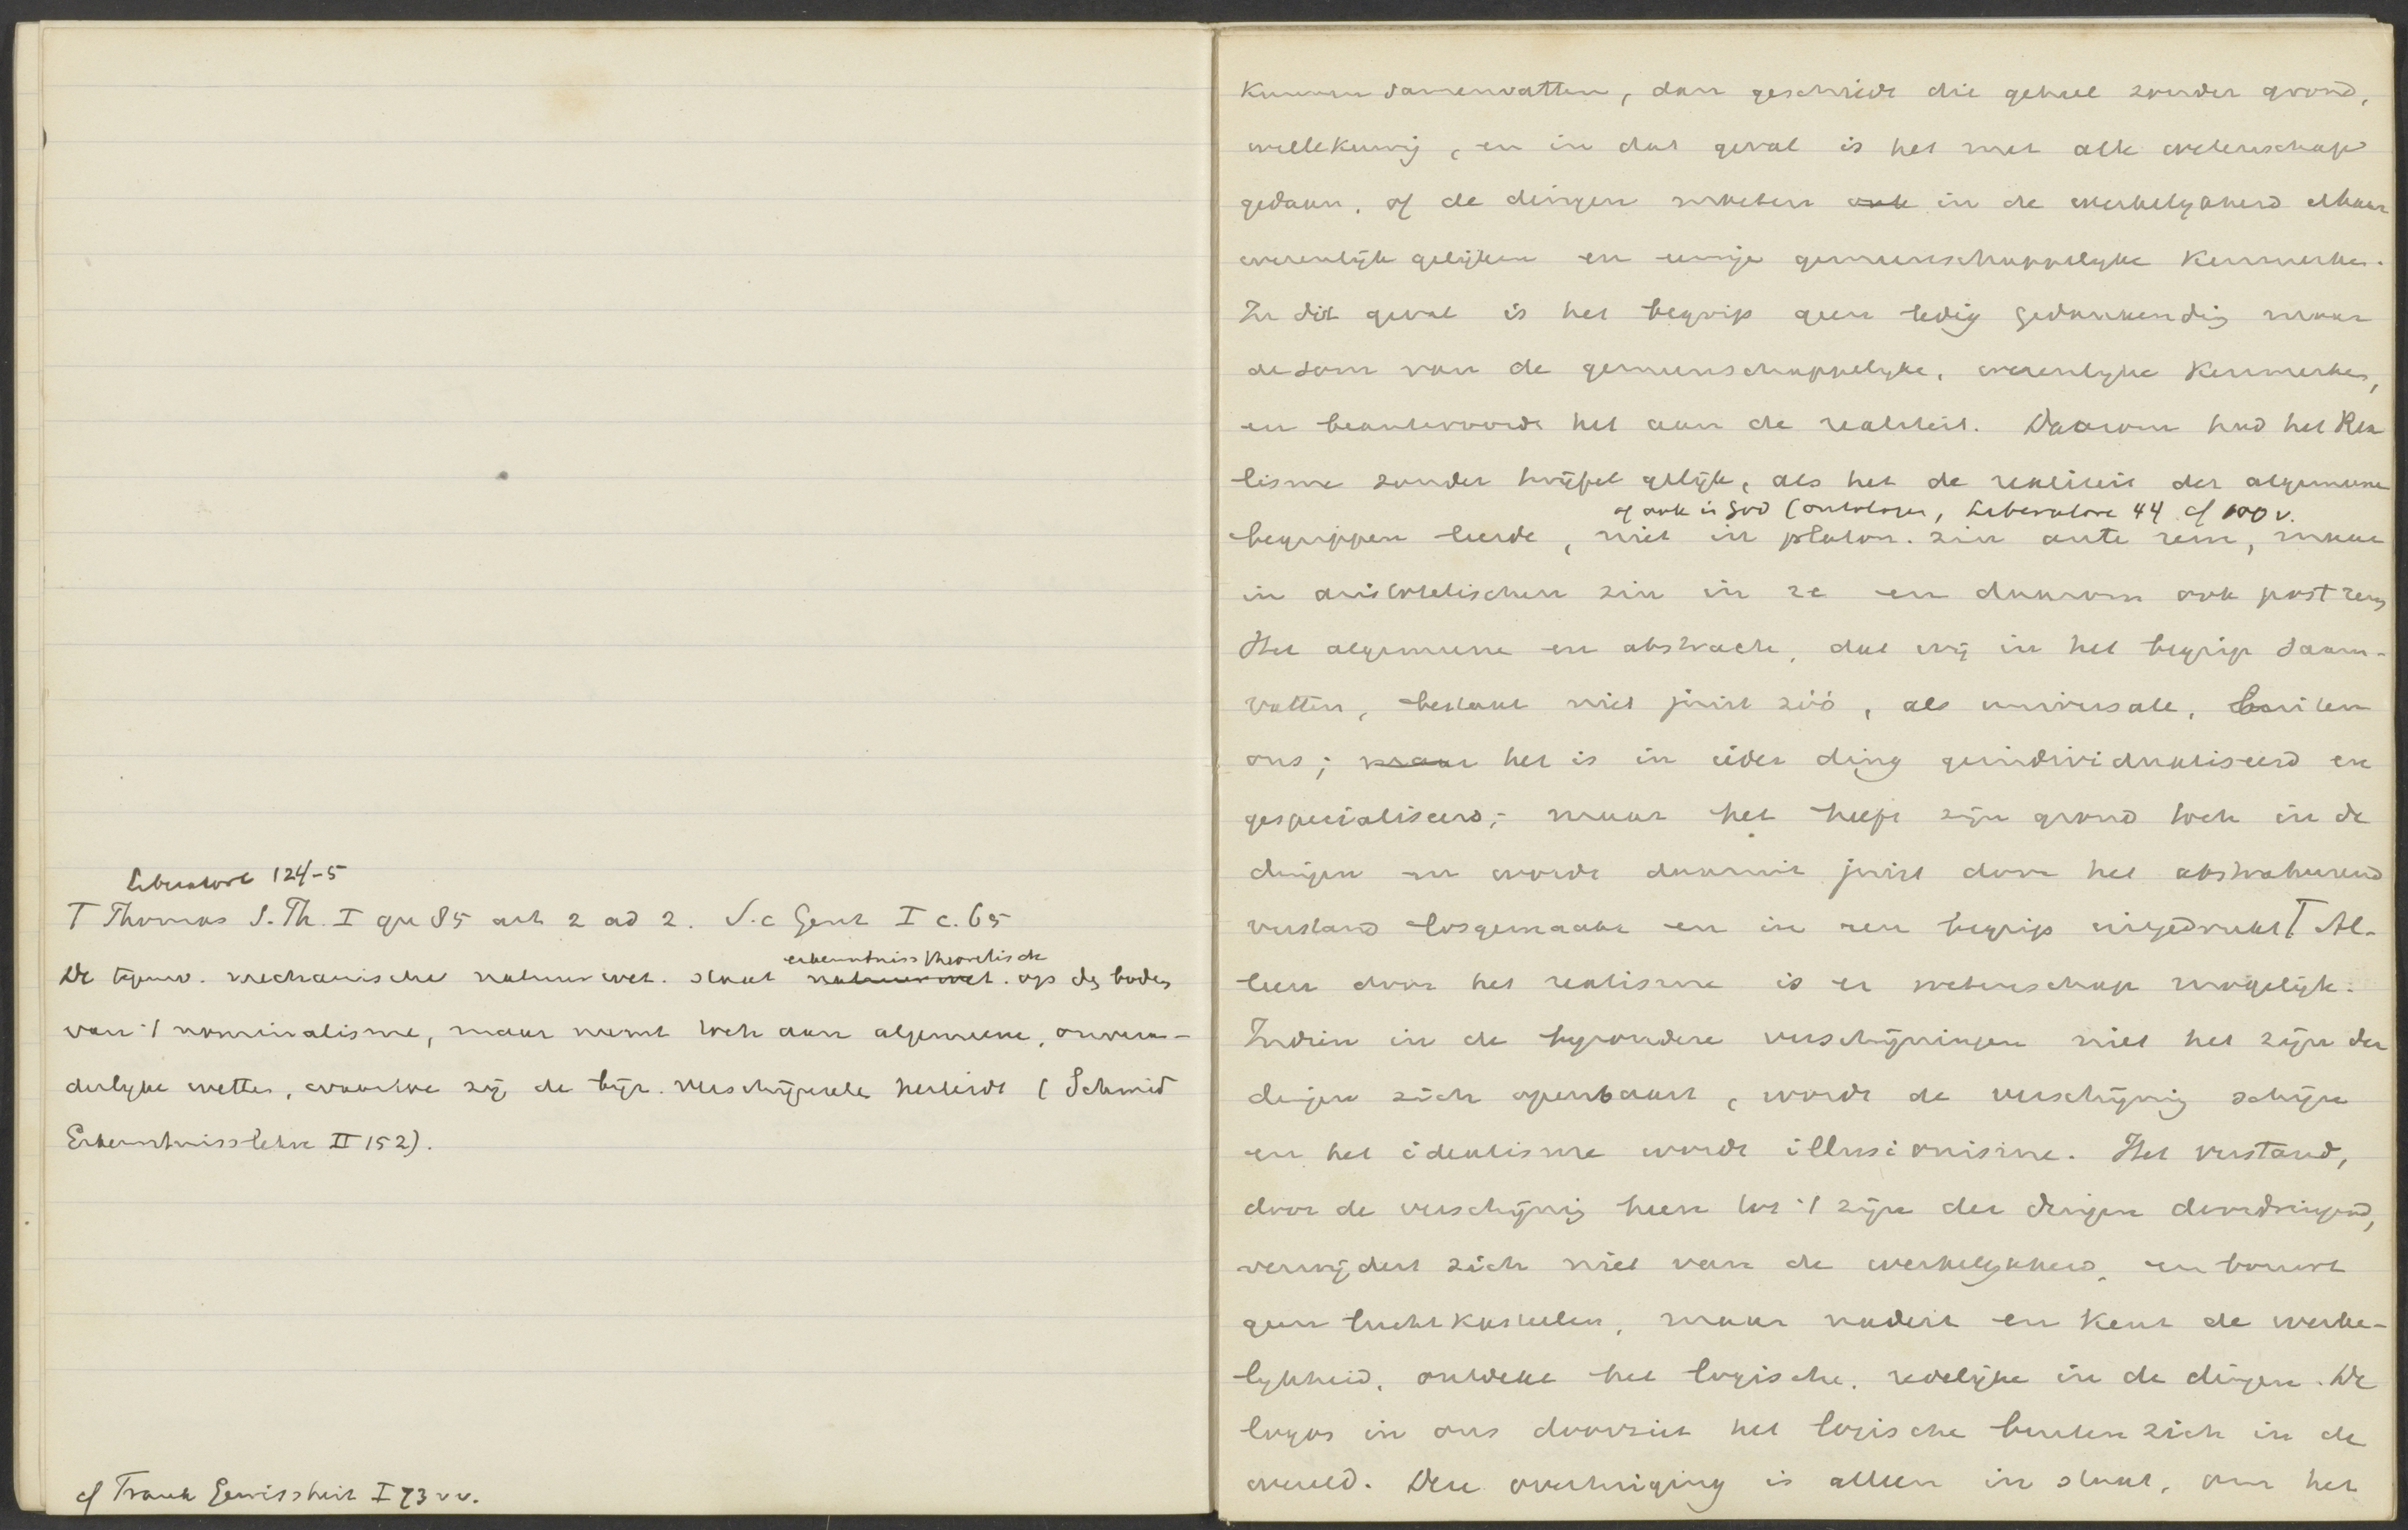 Liberatore 124-5
T Thomas S. Th. I qu 85 art 2 ad 2. S. c Gent I c. 65
erkenntnisstheoretisch
De tegenw. mechanische natuurwet. staat natuurwet. op de bodem
van 't nominalisme, maar neemt toch aan algemeene, onveran-
derlyke wetten, waartoe zij de byz. verschijnselen herleidt (Schmid
Erkenntnisslehre II 152).
cf Frank Gewissheit I 73 vv.
kunnen samenvatten, dan geschiedt die geheel zonder grond,
willekeurig, en in dat geval is het met alle wetenschap
gedaan, of de dingen moeten ook in de werkelykheid elkaar
wezenlijk gelijken en eenige gemeenschappelyke kenmerken.
In dit geval is het begrip geen ledig gedankending maar
de som van de gemeenschappelyke, wezenlyke kenmerken,
en beantwoordt het aan de realiteit. Daarom had het Rea
lisme zonder twijfel gelijk, als het de realiteit der algemeene
of ook in God (ontologen, Liberatore 44 cf 100 v.
begrippen leerde, niet in platon. zin ante rem, maar
in aristotelischen zin in re en daarom ook post rem
Het algemeene en abstracte, dat wij in het begrip saam-
vatten, bestaat niet juist zóó, als universale, buiten
ons; maar het is in ieder ding geindividualiseerd en
gespecialiseerd; maar het heeft zijn grond toch in de
dingen en wordt daaruit juist door het abstraheerend
verstand losgemaakt en in een begrip uitgedrukt T Al-
leen door het realisme is er wetenschap mogelijk.
Indien in de byzondere verschijningen niet het zijn der
dingen zich openbaart, wordt de verschijning schijn
en het idealisme wordt illusionisme. Het verstand,
door de verschijning heen tot 't zijn der dingen doordringend,
verwijdert zich niet van de werkelykheid, en bouwt
geen luchtkasteelen, maar nadert en kent de werke-
lykheid, ontdekt het logische, redelijke in de dingen. De
logos in ons doorziet het logische buiten zich in de
wereld. Deze overtuiging is alleen in staat, om het